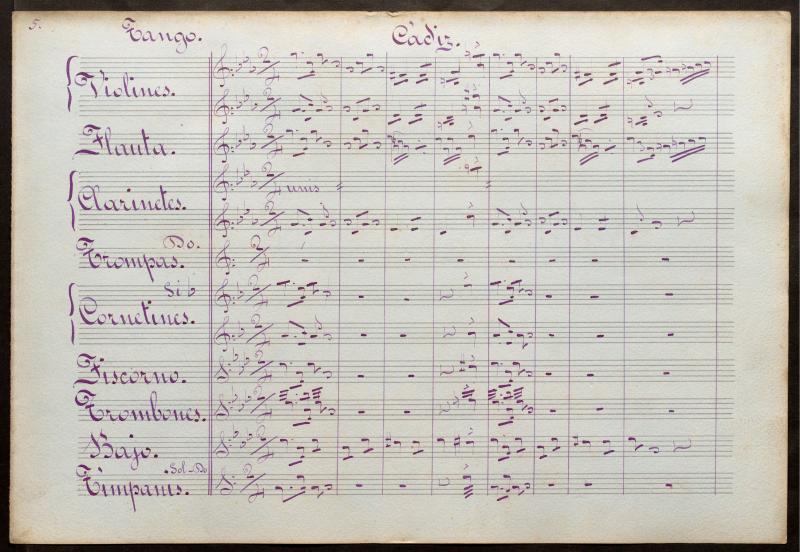 5.
Tango. Cádiz.
Violines.
Flauta.
unis
Clarinetes.
Do.
Trompas.
Si b
Cornetines.
Fiscorno.
Trombones.
Bajo.
Sol-Do
Timpanis.